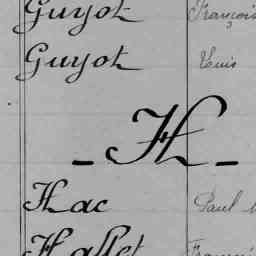 Guyot François
Guyot Louis
- H -
Hac Paul
Hallet